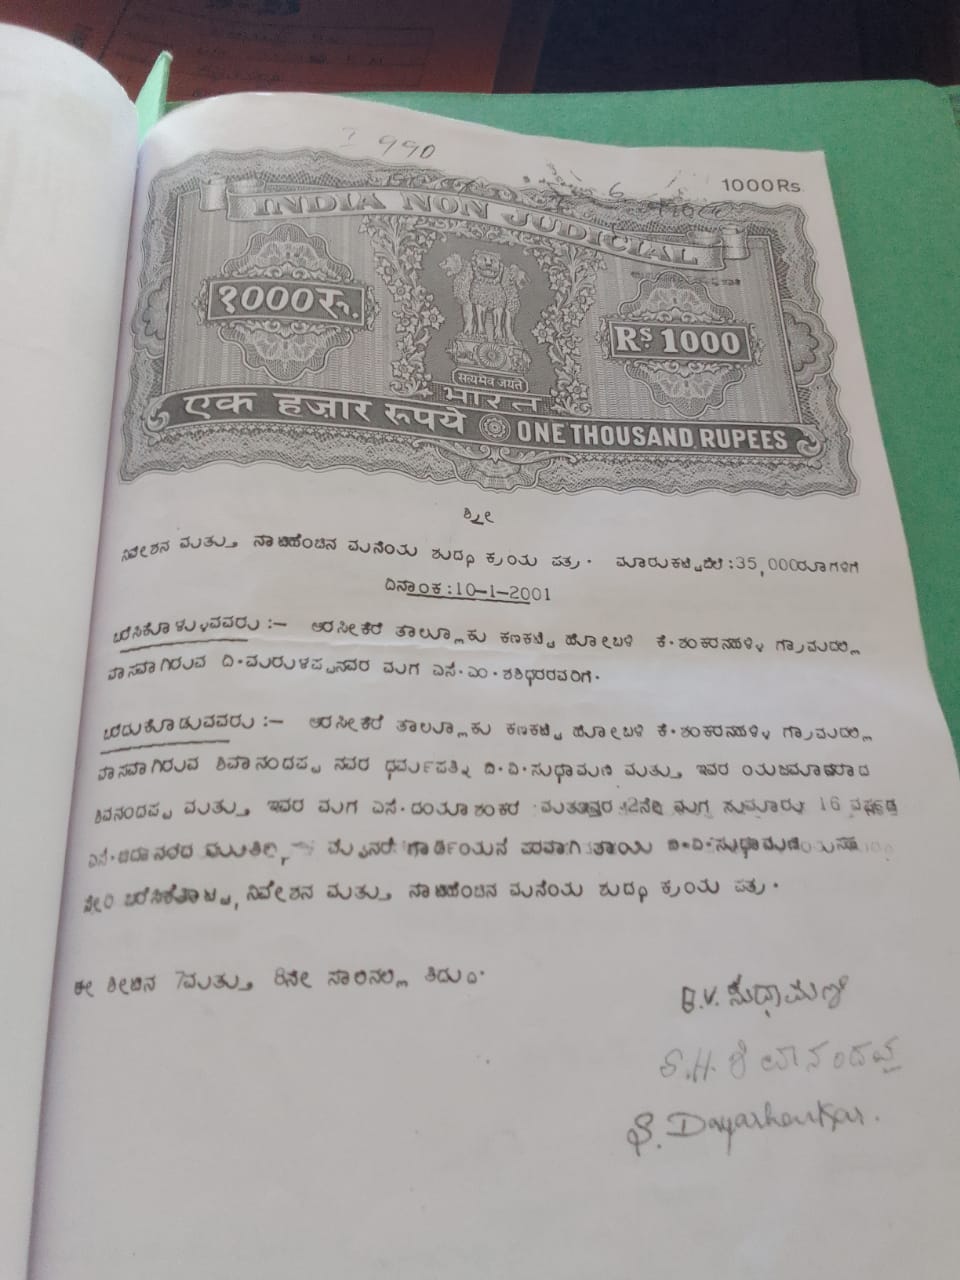 990
1000Rs
INDIA NON JUDICIAL
१000रु.
सत्यमेव जयते
भारत
Rs 1000
एक हजार रुपये ONE THOUSAND RUPEES
ಶ್ರೀ
ನಿವೇಶನ ಮತ್ತು ನಾಟಿಹೆಂಚಿನ ಮನೆಯ ಶುದ್ಧ ಕ್ರಯ ಪತ್ರ. ಮಾರುಕಟ್ಟೆಬೆಲೆ:35,000ರೂಗಳಿಗೆ
ದಿನಾಂಕ:10-1-2001
ಬರೆಸಿಕೊಳ್ಳುವವರು:- ಅರಸೀಕೆರೆ ತಾಲ್ಲೂಕು ಕಣಕಟ್ಟೆ ಹೋಬಳಿ ಕೆ.ಶಂಕರನಹಳ್ಳಿ ಗ್ರಾಮದಲ್ಲಿ
ವಾಸವಾಗಿರುವ ದಿ.ಮರುಳಪ್ಪನವರ ಮಗ ಎಸ್.ಎಂ.ಶಶಿಧರರವರಿಗೆ.
ಬರೆದುಕೊಡುವವರು:- ಅರಸೀಕೆರೆ ತಾಲ್ಲೂಕು ಕಣಕಟ್ಟೆ ಹೋಬಳಿ ಕೆ.ಶಂಕರನಹಳ್ಳಿ ಗ್ರಾಮದಲ್ಲಿ
ವಾಸವಾಗಿರುವ ಶಿವಾನಂದಪ್ಪ ನವರ ಧರ್ಮಪತ್ನಿ ಬಿ.ವಿ.ಸುಧಾಮಣಿ ಮತ್ತು ಇವರ ಯಜಮಾನರಾದ
ಶಿವನಂದಪ್ಪ ಮತ್ತು ಇವರ ಮಗ ಎಸ್.ದಯಾಶಂಕರ 2ನೇ ಮಗ ಸುಮಾರು 16 ವರ್ಷದ
ಗಾರ್ಡಿಯನ ಪರವಾಗಿ ತಾಯಿ ಬಿ.ವಿ.ಸುಧಾಮಣಿ
ಸೇರಿ ಬರೆಸಿಕೊಟ್ಟ, ನಿವೇಶನ ಮತ್ತು ನಾಟಿಹೆಂಚಿನ ಮನೆಯ ಶುದ್ಧ ಕ್ರಯ ಪತ್ರ.
ಈ ಶೀಟಿನ 7ಮತ್ತು 8ನೇ ಸಾಲಿನಲ್ಲಿ ತಿದ್ದಿದೆ.
B.V. ಸುಧಾಮಣಿ
S.H. ಶಿವಾನಂದಪ್ಪ
S. Dayashankar.